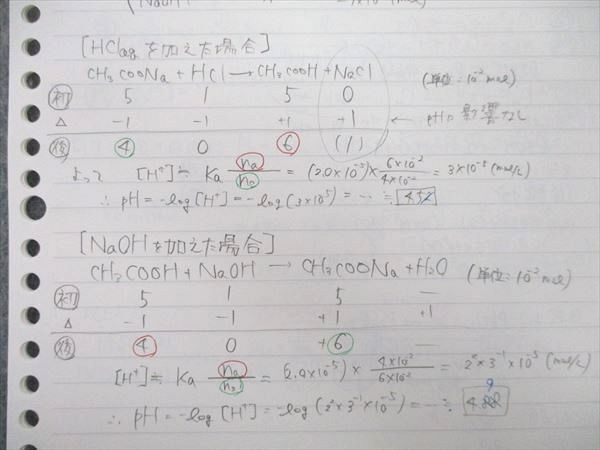 [HClaqを加えた場合]
CH3COONa + HCl → CH3COOH + NaCl (単位:10^-2 mol)
初 5 1 5 0
Δ -1 -1 +1 +1 ← pHに影響なし
後 4 0 6 (1)
よって [H+]≒ Ka na/ns = (2.0×10^-5)× 6×10^-2/4×10^-2 = 3×10^-5 (mol/L)
∴ pH = -log[H+] = -log(3×10^-5) = … ≒ 4.52
[NaOHを加えた場合]
CH3COOH + NaOH → CH3COONa + H2O (単位:10^-2 mol)
初 5 1 5 —
Δ -1 -1 +1 +1
後 4 0 +6 —
[H+]≒ Ka na/ns = (2.0×10^-5) × 4×10^-2/6×10^-2 = 2^2×3^-1×10^-5 (mol/L)
∴ pH = -log[H+] = -log(2^2×3^-1×10^-5) = … ≒